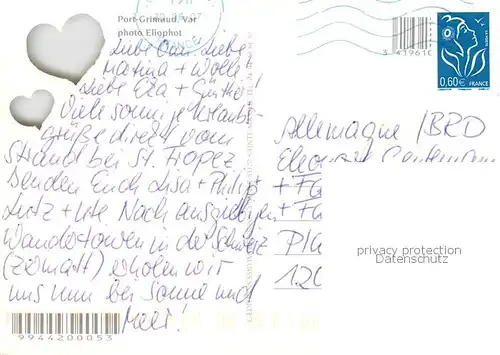 Port-Grimaud, Var
photo Eliophot
Liebe Omi, Liebe
Martina + Wolle!
Liebe Eva + Günther!
Viele sonnige Urlaubs-
grüße direkt vom
Strand bei St. Tropez
senden Euch Lisa + Philipp
Lutz + Ute Nach ausgiebigen
Wandertouren in der Schweiz
(Zermatt) erholen wir
uns nun bei Sonne und
Meer!
9944200053
3 41961
0,60€ FRANCE
Allemagne / BRD
PIK
120
privacy protection
Datenschutz